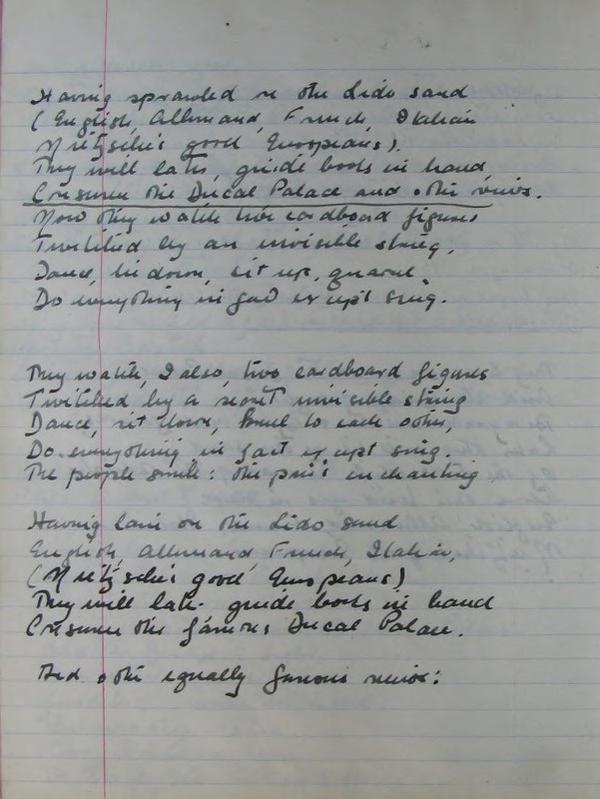 Having sprawled on the Lido sand
(English, Allemand, French, Italian
Nietzsche's good Europeans).
They will later, guide books in hand,
Consume the Ducal Palace and other views.
Now they watch two cardboard figures
Twitched by an invisible string,
Dance, lie down, sit up, quarrel.
Do everything in fact except sing.
They watch, I also, two cardboard figures
Twitched by a secret invisible string
Dance, sit down, bow to each other,
Do everything in fact except sing.
The people smile: the pair's enchanting
Having lain on the Lido sand
English, Allemand, French, Italian,
(Nietzsche's good Europeans)
They will later guide books in hand
Consume the famous Ducal Palace.
And other equally famous views: